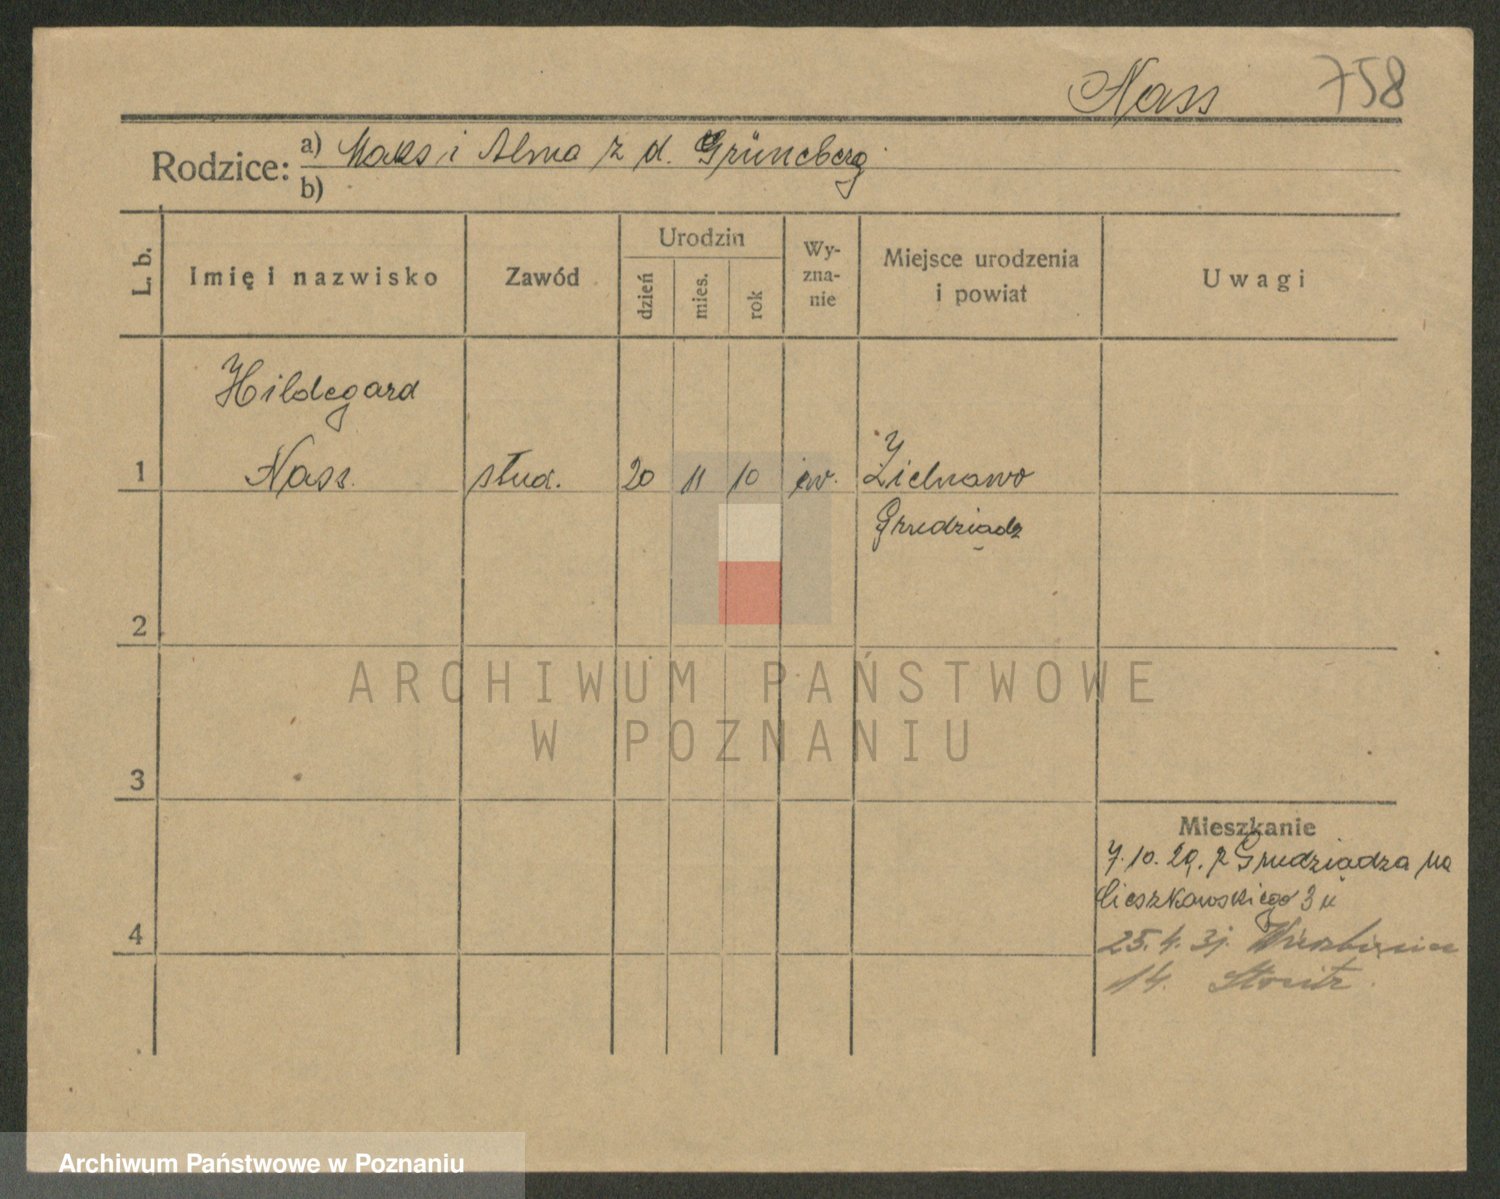 Nass 758
Rodzice: a) Maks i Alma z d. Grüneberg
b)
L. b. Imię i nazwisko Zawód Urodzin dzień mies. rok Wyznanie Miejsce urodzenia i powiat Uwagi
Hildegard
1 Nass. stud. 20 11 10 ew. Zielnowo
Grudziądz
2
ARCHIWUM PAŃSTWOWE
W POZNANIU
3
Mieszkanie
7.10.29. z Grudziądza na
Cieszkowskiego 3
4
25.4.31. Wierzbięcice
14.
Archiwum Państwowe w Poznaniu